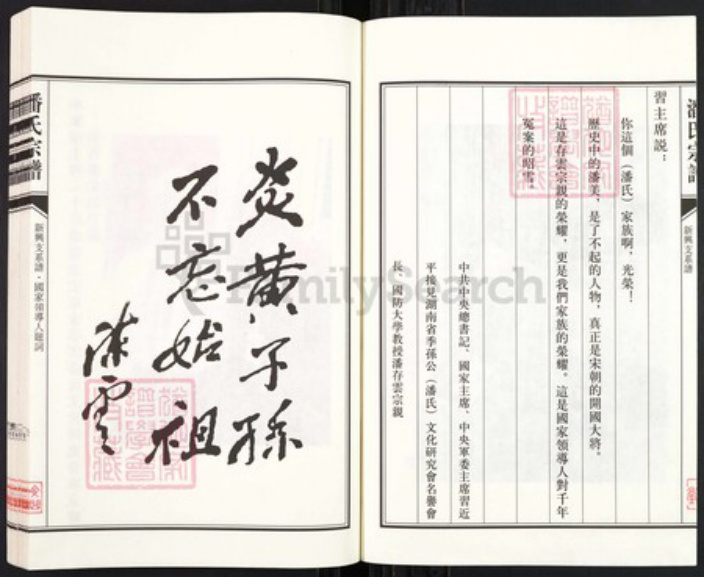 潘氏宗譜
新興支系譜
習主席說：
你這個（潘氏）家族啊，光榮！
歷史中的潘美，是了不起的人物，真正是宋朝的開國大將。
這是存雲宗親的榮耀，更是我們家族的榮耀。這是國家領導人對千年
冤案的昭雪。
中共中央總書記、國家主席、中央軍委主席習近
平接見湖南省季孫公（潘氏）文化研究會名譽會
長、國防大學教授潘存雲宗親
炎黃子孫
不忘始祖
陳雲
潘氏宗譜
新興支系譜·國家領導人題詞
FamilySearch